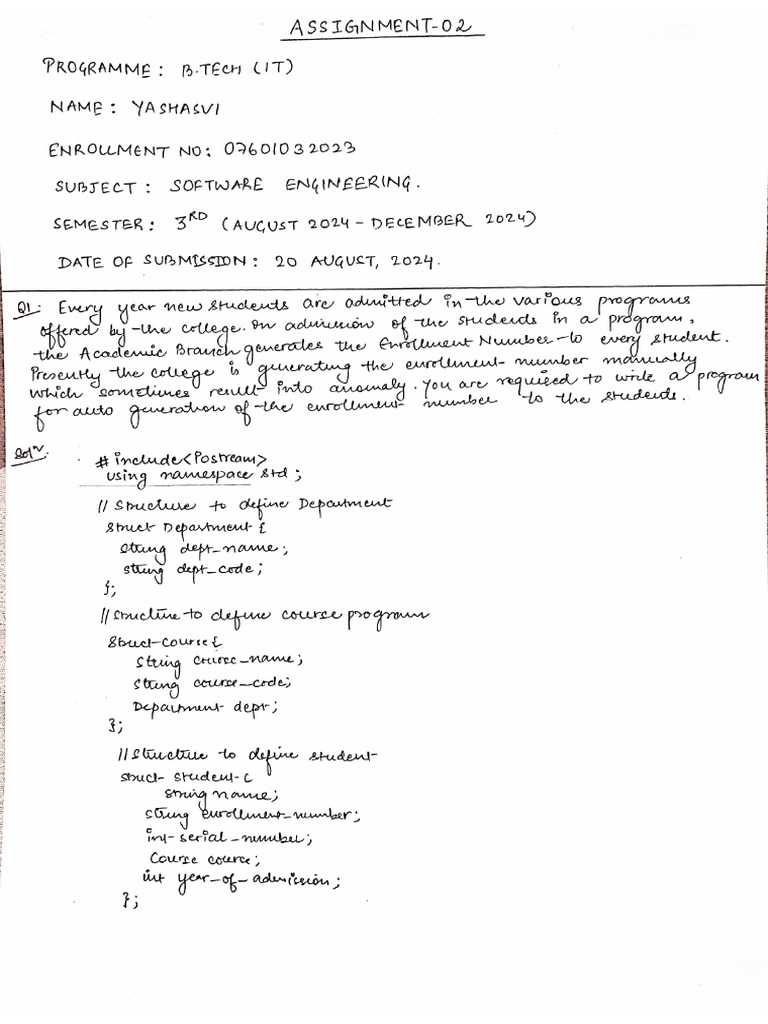 ASSIGNMENT-02
PROGRAMME: B.TECH (IT)
NAME: YASHASVI
ENROLLMENT NO: 07601032023
SUBJECT: SOFTWARE ENGINEERING.
SEMESTER: 3RD (AUGUST 2024 - DECEMBER 2024)
DATE OF SUBMISSION: 20 AUGUST, 2024.
Q1. Every year new students are admitted in the various programs
offered by the college. On admission of the students in a program,
the Academic Branch generates the Enrollment Number to every student.
Presently the college is generating the enrollment number manually
which sometimes result into anomaly. You are required to write a program
for auto generation of the enrollment number to the students.
Solⁿ.
#include<iostream>
using namespace std;
// Structure to define Department
Struct Department {
string dept_name;
string dept_code;
};
// Structure to define course program
Struct Course {
String course_name;
String course_code;
Department dept;
};
// Structure to define student
struct student {
string name;
string enrollment_number;
int serial_number;
Course course;
int year_of_admission;
};